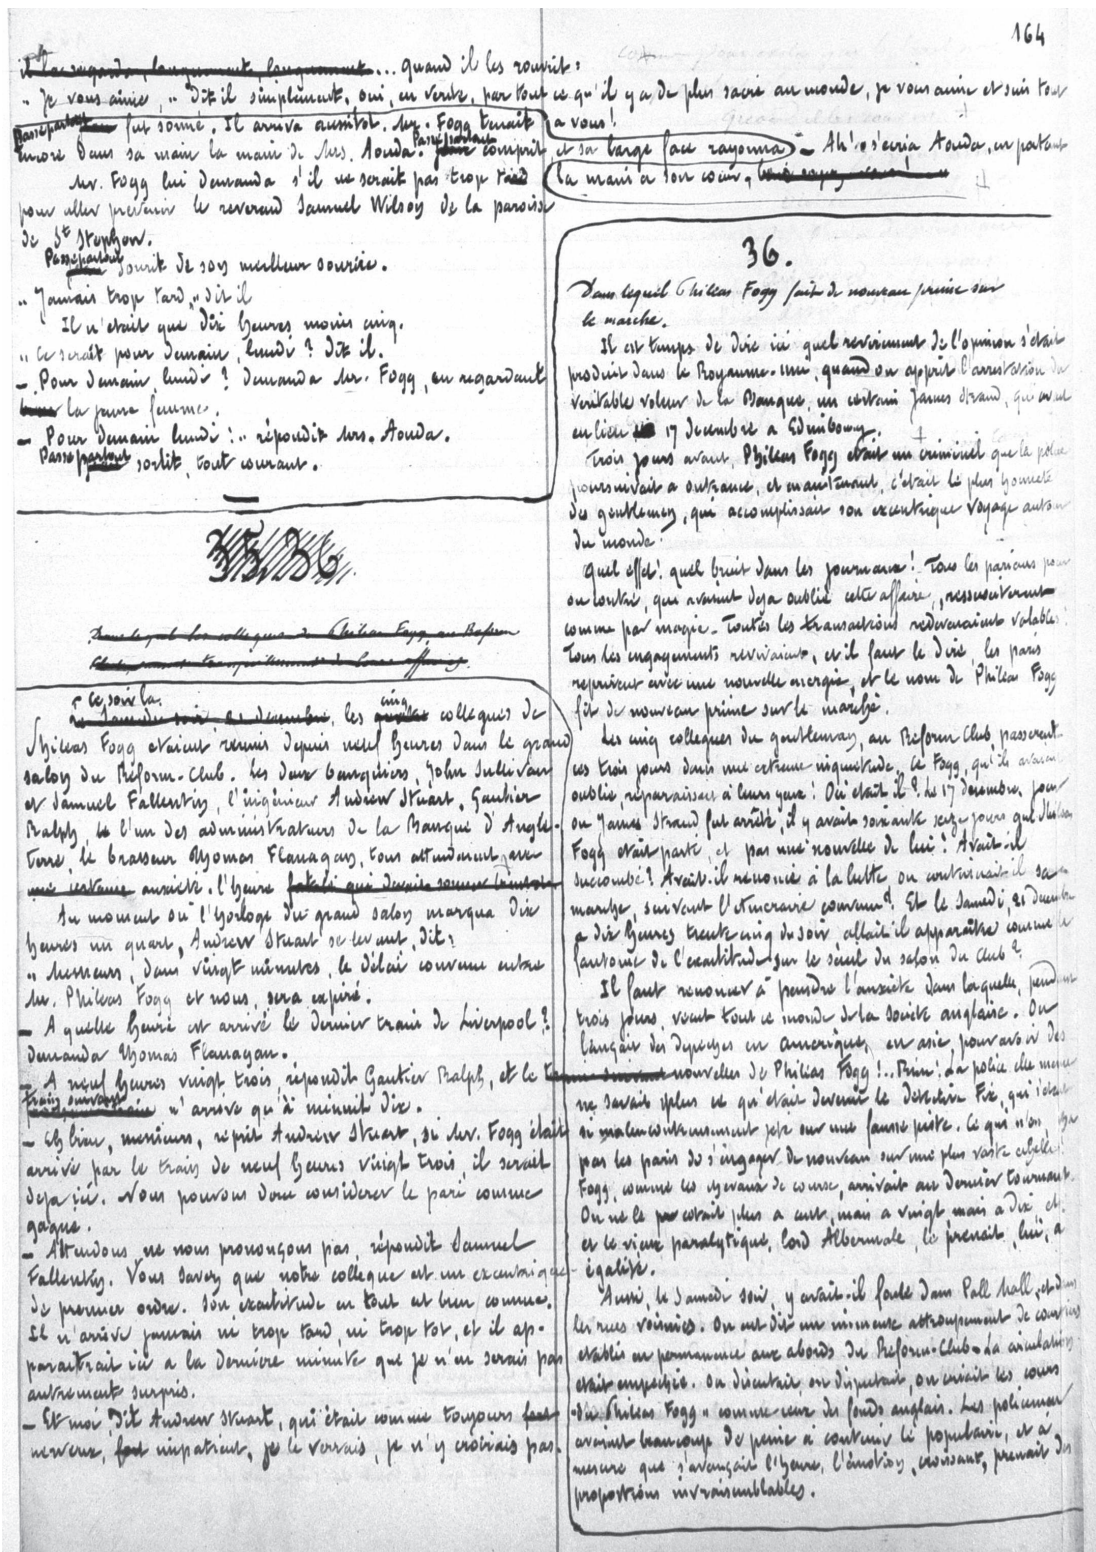 164
il la regarda, longuement, longuement... quand il les rouvrit :
" Je vous aime, " dit-il simplement. oui, en verité, par tout ce qu'il y a de plus sacré au monde, je vous aime et suis tout
à vous !
Passepartout fut sonné. Il arriva aussitot. Mr. Fogg tenait
encore dans sa main la main de Mrs. Aouda. Passepartout comprit et sa large face rayonna
- Ah ! s'écria Aouda, en portant
la main à son coeur,
Mr. Fogg lui demanda s'il ne serait pas trop tard
pour aller prévenir le reverend Samuel Wilson de la paroisse
de St Stephen.
Passepartout sourit de son meilleur sourire.
" Jamais trop tard, " dit il
Il n'était que dix heures moins cinq.
" Ce serait pour demain, lundi ? dit il.
- Pour demain, lundi ? demanda Mr. Fogg, en regardant
la jeune femme.
- Pour demain lundi ! " répondit Mrs. Aouda.
Passepartout sortit, tout courant.
35. 36.
Dans lequel les collègues de Phileas Fogg, au Reform
Ce soir là
21 decembre, les cinq collègues de
Phileas Fogg etaient reunis depuis neuf heures dans le grand
salon du Reform-Club. Les deux banquiers, John Sullivan
et Samuel Fallentin, l'ingénieur Andrew Stuart, Gautier
Ralph, l'un des administrateurs de la Banque d'Angle-
terre, le brasseur Thomas Flanagan, tous attendaient avec
une certaine anxiété. l'heure fatale qui devait sonner
Au moment où l'horloge du grand salon marqua dix
heures un quart, Andrew Stuart se levant, dit :
" Messieurs, dans vingt minutes, le délai convenu entre
Mr. Phileas Fogg et nous, sera expiré.
- A quelle heure est arrivé le dernier train de Liverpool ?
demanda Thomas Flanagan.
- A neuf heures vingt trois, répondit Gautier Ralph, et le
train suivant n'arrive qu'à minuit dix.
- Eh bien, messieurs, reprit Andrew Stuart, si Mr. Fogg était
arrivé par le train de neuf heures vingt trois, il serait
deja ici. Nous pouvons donc considerer le pari comme
gagné.
- Attendons, ne nous prononçons pas, répondit Samuel
Fallentin. Vous savez que notre collegue est un excentrique
de premier ordre. Son exactitude en tout est bien connue.
Il n'arrive jamais ni trop tard, ni trop tot, et il ap-
paraitrait ici a la dernière minute que je n'en serais pas
autrement surpris.
- Et moi, dit Andrew Stuart, qui était comme toujours
nerveux, impatient, je le verrais, je n'y croirais pas.
36.
Dans lequel Phileas Fogg fait de nouveau prime sur
le marché.
Il est temps de dire ici quel revirement de l'opinion s'était
produit dans le Royaume-uni, quand on apprit l'arrestation du
veritable voleur de la Banque, un certain James Strand, qui avait
eu lieu 17 decembre a Edimbourg.
Trois jours avant, Phileas Fogg etait un criminel que la police
poursuivait a outrance, et maintenant, c'était le plus honnete
des gentlemen, qui accomplissait son excentrique voyage autour
du monde !
Quel effet ! quel bruit dans les journaux ! Tous les parieurs pour
ou contre, qui avaient deja oublié cette affaire, ressusciterent
comme par magie. Toutes les transactions redevenaient valables.
Tous les engagements revivaient, et il faut le dire, les paris
reprirent avec une nouvelle energie, et le nom de Phileas Fogg
fit de nouveau prime sur le marché.
Les cinq collegues du gentleman, au Reform Club, passerent
ces trois jours dans une certaine inquietude. Ce Fogg, qu'ils avaient
oublié, reparaissait à leurs yeux ! Où etait il ? Le 17 decembre, jour
ou James Strand fut arrêté, il y avait soixante seize jours que Phileas
Fogg etait parti, et pas une nouvelle de lui ! Avait-il
succombé ? Avait-il renoncé à la lutte ou continuait il sa
marche, suivant l'itineraire convenu ? Et le Samedi, 21 decembre
a dix heures trente cinq du soir, allait il apparaître comme le
fantome de l'exactitude, sur le seuil du salon du Club ?
Il faut renoncer à peindre l'anxiété dans laquelle, pendant
trois jours, vécut tout ce monde de la Société anglaise. On
lançait des depeches en amerique, en asie, pour avoir des
nouvelles de Phileas Fogg !.. Rien ! La police elle meme
ne savait plus ce qu'etait devenu le détective Fix, qui s'était
si malencontreusement jeté sur une fausse piste. Ce qui n'empêcha
pas les paris de s'engager de nouveau sur une plus vaste echelle.
Fogg, comme les chevaux de course, arrivait au dernier tournant.
On ne le cotait plus a cent, mais a vingt mais a dix et
et le vieux paralytique, lord Albermale, le prenait, lui, à
égalité.
Aussi, le Samedi soir, y avait-il foule dans Pall Mall, et dans
les rues voisines. On eut dit un immense attroupement de courtiers
etablis en permanence aux abords du Reform-Club. La circulation
etait empechée. On discutait, on disputait, on criait les cours
" du Phileas Fogg " comme ceux des fonds anglais. Les policemen
avaient beaucoup de peine a contenir le populaire, et à
mesure que s'avançait l'heure, l'émotion, croissant, prenait des
proportions invraisemblables.